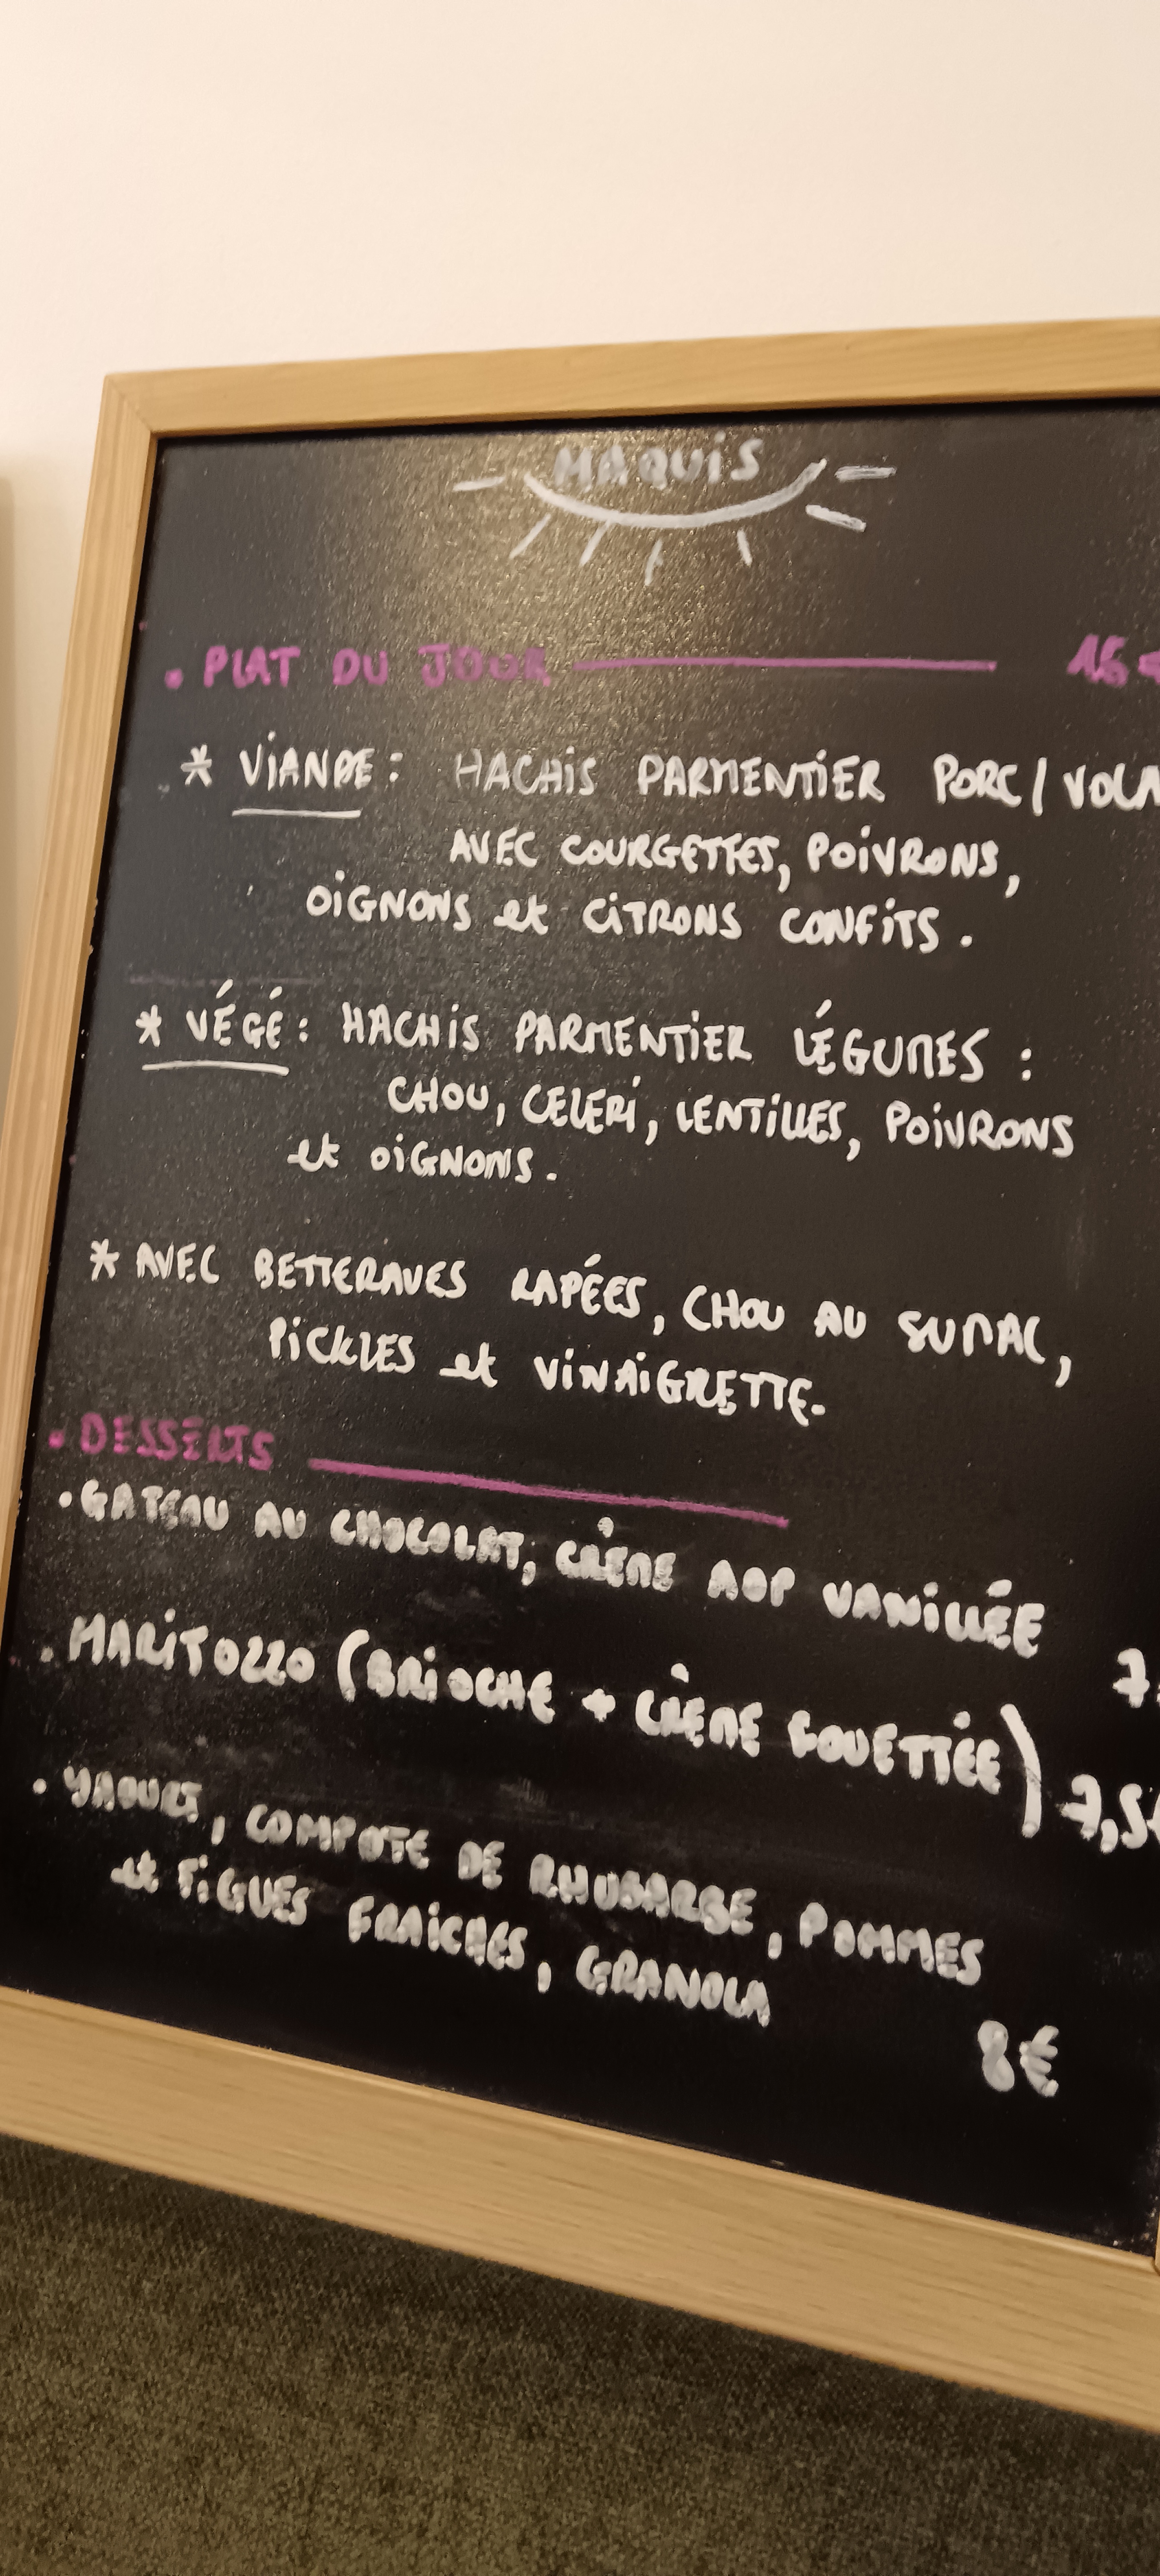 MAQUIS
• PLAT DU JOUR
* VIANDE : HACHIS PARMENTIER PORC /
AVEC COURGETTES, POIVRONS,
OIGNONS et CITRONS CONFITS.
* VÉGÉ : HACHIS PARMENTIER LÉGUMES :
CHOU, CELERI, LENTILLES, POIVRONS
et OIGNONS.
* AVEC BETTERAVES RAPÉES, CHOU AU SUMAC,
PICKLES et VINAIGRETTE.
• DESSERTS
• GATEAU AU CHOCOLAT, CRÈME AOP VANILLÉE
• MARITOZZO (BRIOCHE + CRÈME FOUETTÉE) 7,5€
• YAOURT, COMPOTE DE RHUBARBE, POMMES
et FIGUES FRAICHES, GRANOLA
8€